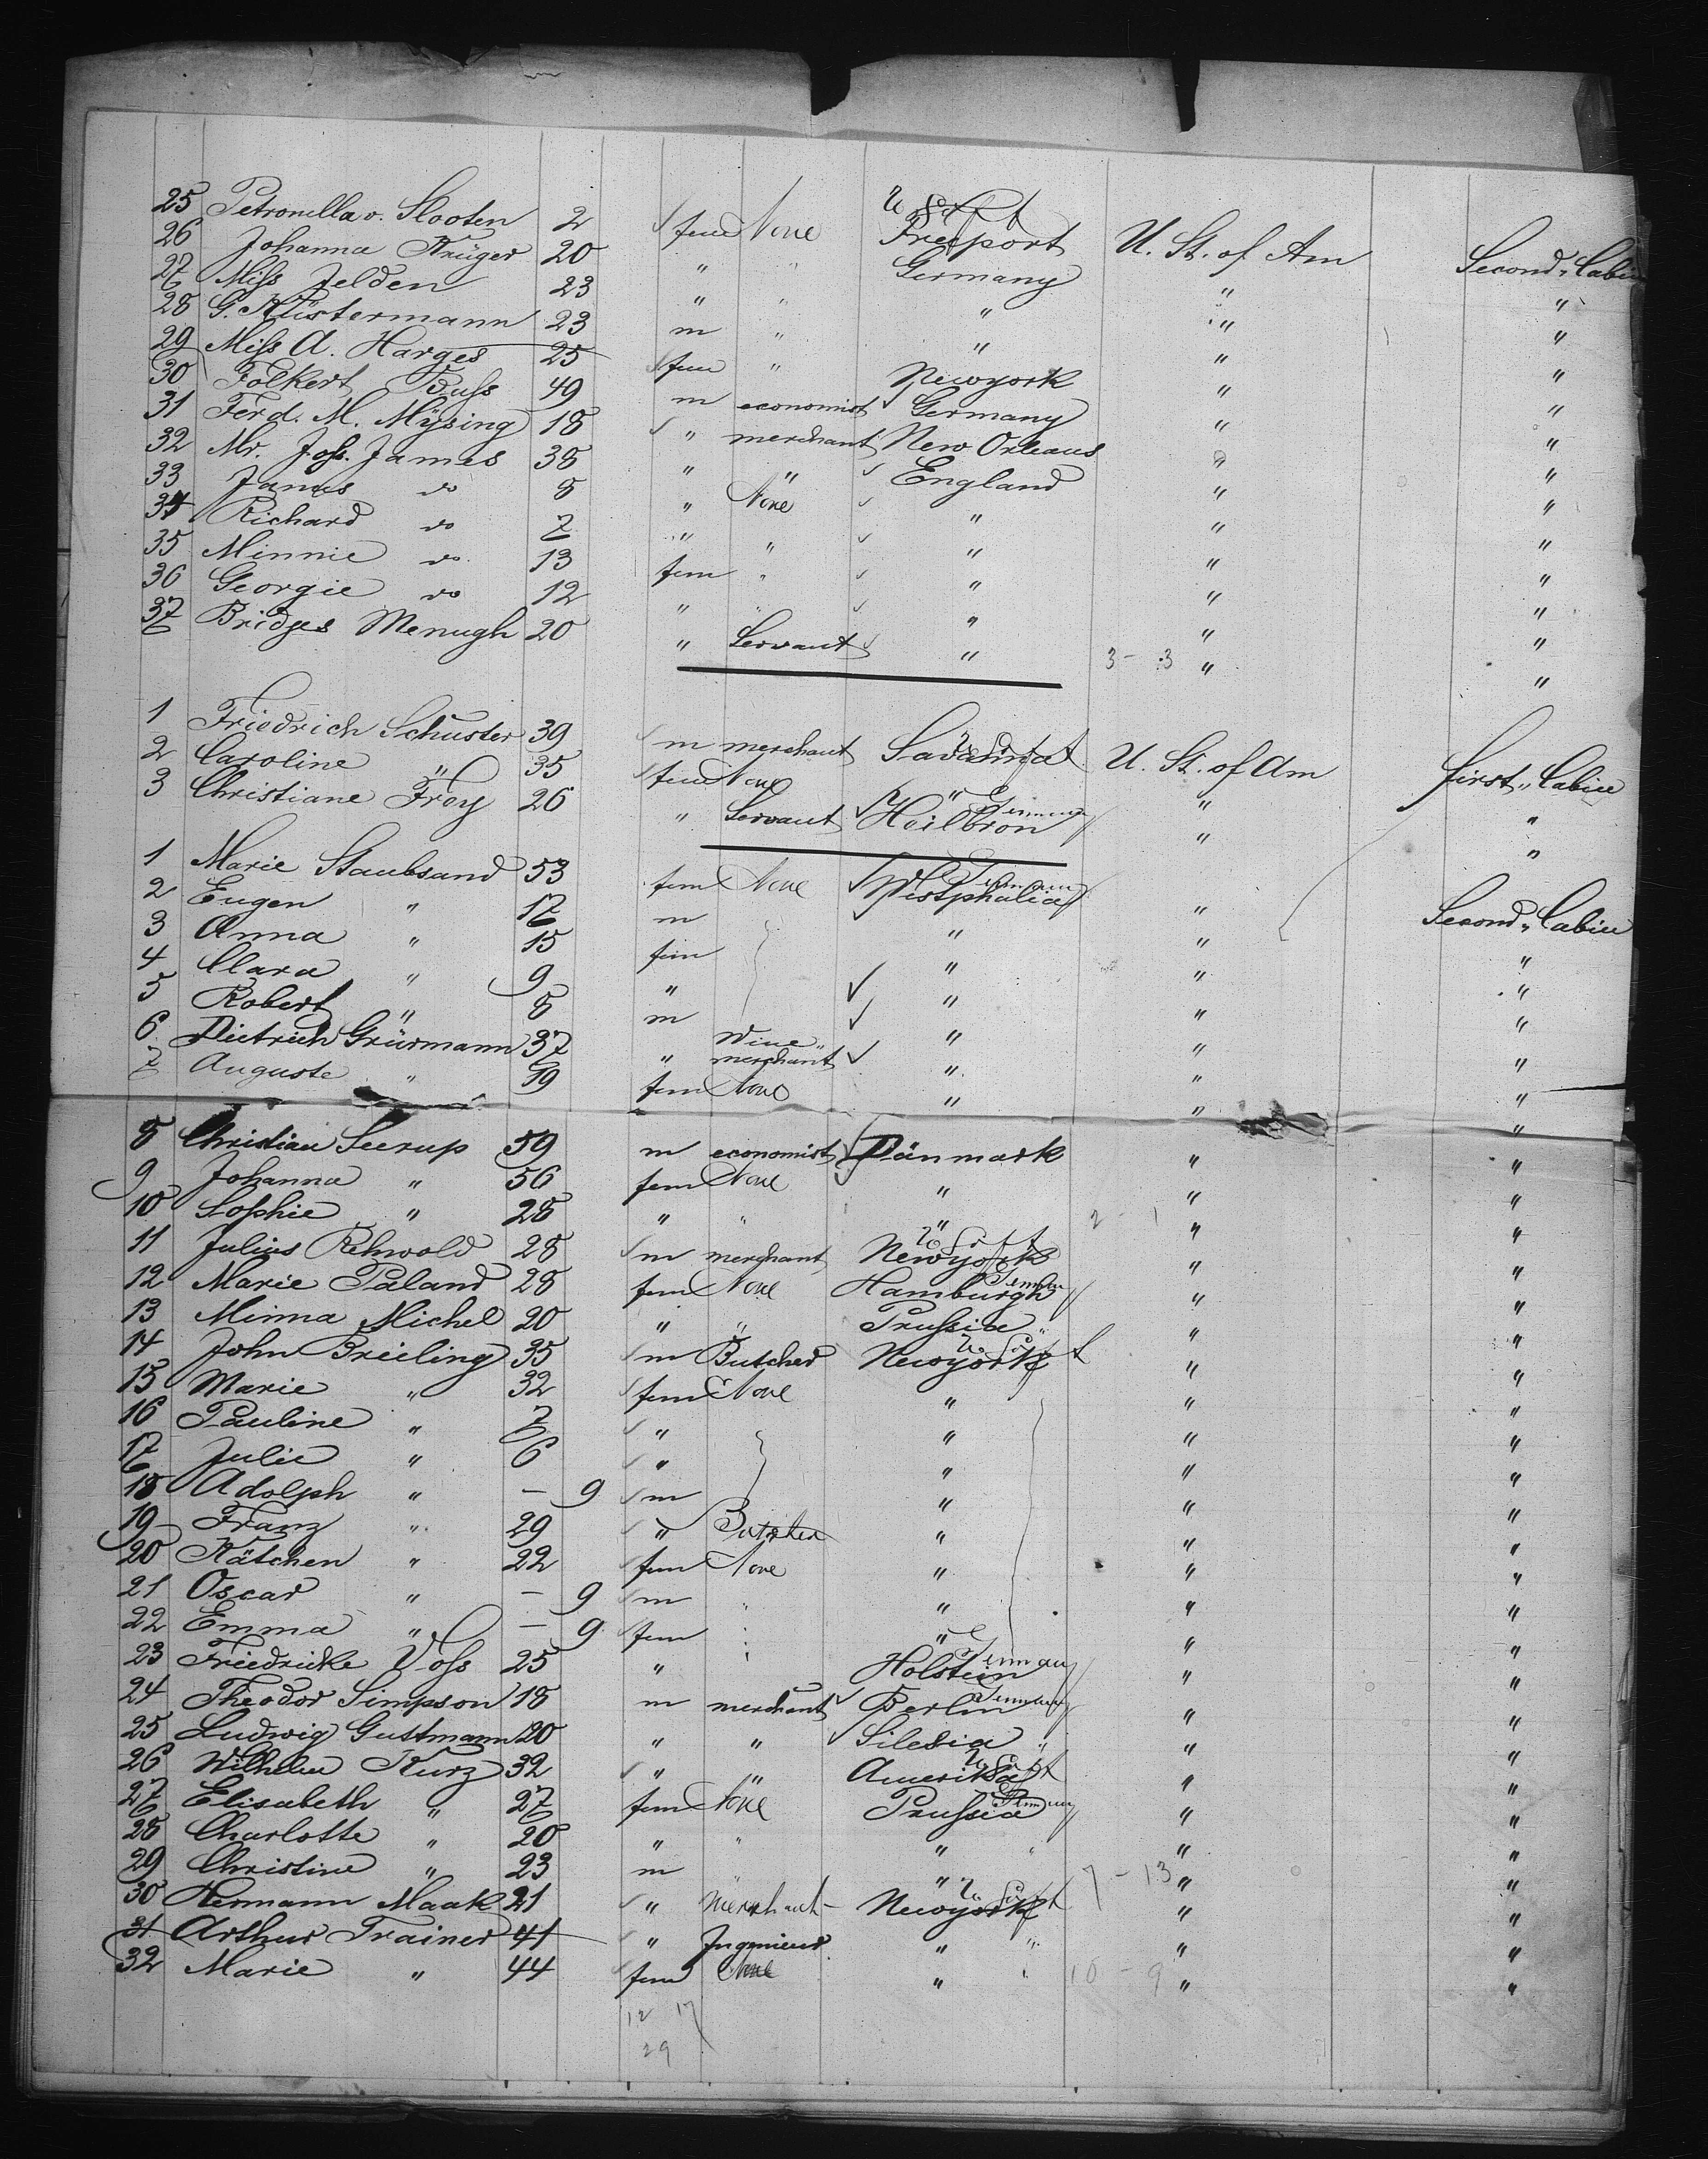 25 Petronella v. Slooten 2 fem None Freeport U. St. of Am Second Cabin
26 Johanna Krüger 20 " " Germany " "
27 Miss Jelden 23 " " " " "
28 G. Küstermann 23 m " " " "
29 Miss A. Harges 25 fem " Newyork " "
30 Folkert Buss 49 m economist Germany " "
31 Ferd. M. Mÿsing 18 " merchant New Orleans " "
32 Mr. Jos. James 38 " " England " "
33 James do 8 " None " " "
34 Richard do 7 " " " " "
35 Minnie do 13 fem " " " "
36 Georgie do 12 " " " " "
37 Bridges Menugh 20 " Servant " 3 - 3 " "
1 Friedrich Schuster 39 m merchant U. St. of Am first Cabin
2 Caroline " 35 fem None " " "
3 Christiane Frey 26 " Servant Heilbron " "
1 Marie Staubsand 53 fem None Westphalia " Second Cabin
2 Eugen " 17 m " " "
3 Anna " 15 fem " " "
4 Clara " 9 " " " "
5 Robert " 8 m " " "
6 Dietrich Grürmann 37 " Wine merchant " " "
7 Auguste " 19 fem None " " "
8 Christian Seerup 59 m economist Dänmark " "
9 Johanna " 56 fem None " " "
10 Sophie " 28 " " " 2 - 1 " "
11 Julius Rehwold 28 m merchant Newyork " "
12 Marie Paland 28 fem None Hamburgh " "
13 Minna Michel 20 " " Prussia " "
14 John Breiling 35 m Butcher Newyork " "
15 Marie " 32 fem None " " "
16 Pauline " 7 " " " "
17 Julie " 6 " " " "
18 Adolph " — 9 m " " "
19 Franz " 29 " Butcher " " "
20 Kätchen " 22 fem None " " "
21 Oscar " — 9 m " " "
22 Emma " — 9 fem " " "
23 Friedricke Voss 25 " Holstein " "
24 Theodor Simpson 18 m merchant Berlin " "
25 Ludwig Guttmann 20 " " Silesia " "
26 Wilhelm Kurz 32 " " Amerika " "
27 Elisabeth " 27 fem None Prussia " "
28 Charlotte " 20 " " " " "
29 Christine " 23 m " 7 - 13 " "
30 Hermann Maak 21 " merchant Newyork " "
31 Arthur Trainer 41 " Ingenieur " " "
32 Marie " 44 fem None " 10 - 9 " "
12 17
29